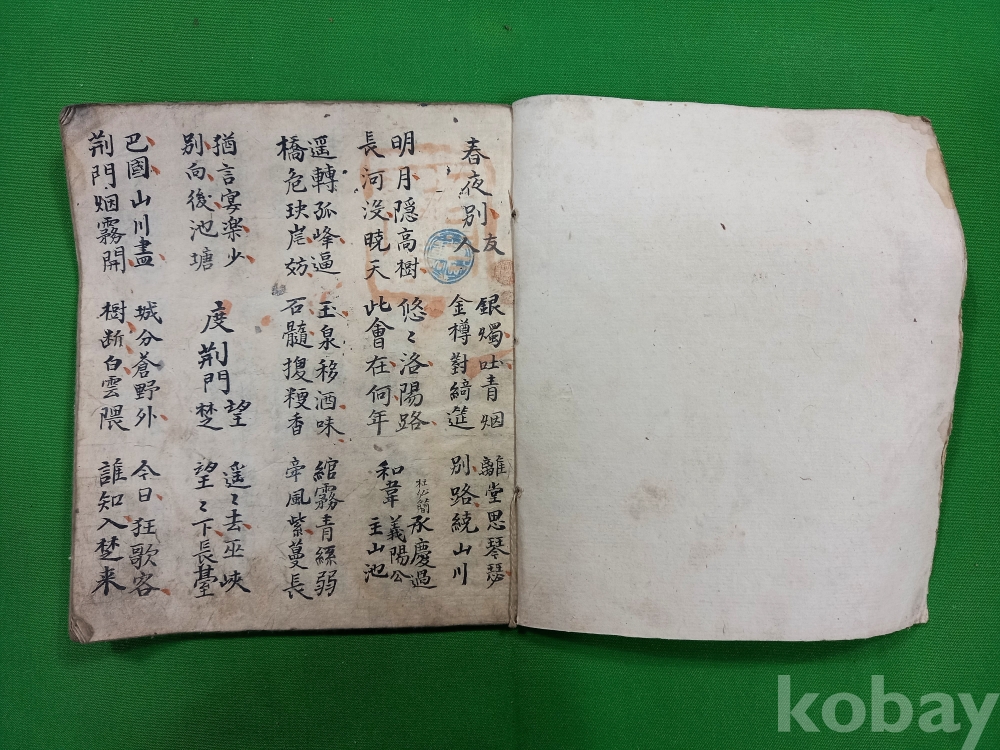 春夜別友人
銀燭吐青烟
金樽對綺筵
離堂思琴瑟
別路繞山川
明月隠高樹
長河没暁天
悠〻洛陽路
此會在何年
杜必簡
和韋承慶過義陽公主山池
遥轉孤峰逼
橋危玦崖妨
玉泉移酒味
石髓㨪粳香
綰霧青絲弱
牽風紫蔓長
猶言宴楽少
別向後池塘
度荆門望楚
遥〻去巫峡
望〻下長臺
巴國山川盡
荆門烟霧開
城分蒼野外
樹断白雲隈
今日狂歌客
誰知入楚来
kobay